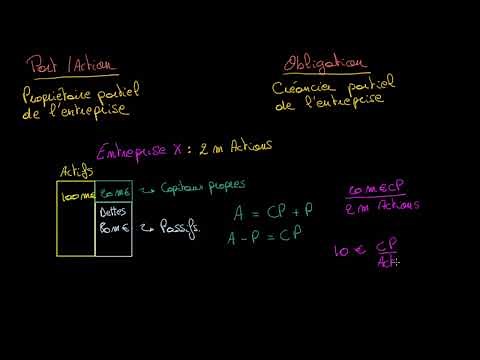 Part / Action
Obligation
Propriétaire partiel
de l'entreprise
Créancier partiel
de l'entreprise
Entreprise X : 2 m Actions
Actifs
100 m€
20 m€ → Capitaux propres
Dettes
80 m€ → Passifs
A = CP + P
A - P = CP
20 m€ CP
2 m Actions
10 € CP
Acti